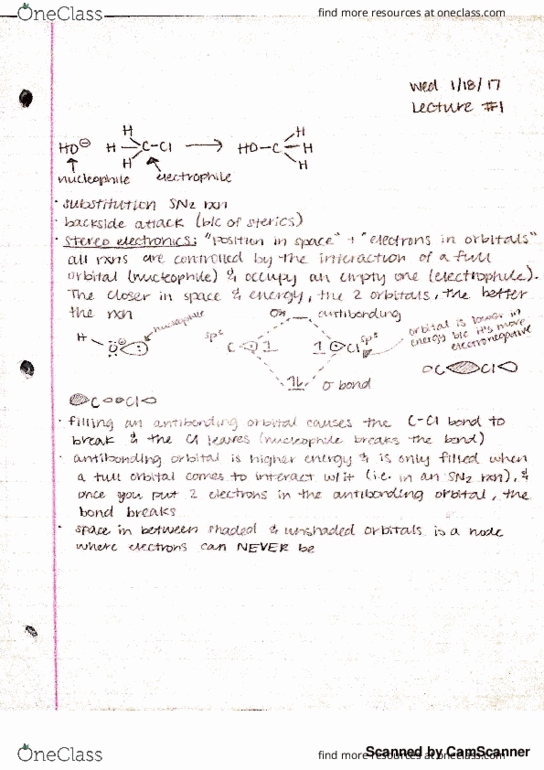 OneClass
find more resources at oneclass.com
Wed 1/18/17
Lecture #1
HO⊖ H C-Cl → HO-C H
H H H H
nucleophile electrophile
· substitution SN2 rxn
· backside attack (b/c of sterics)
· stereo electronics: "position in space" + "electrons in orbitals"
all rxns are controlled by the interaction of a full
orbital (nucleophile) & occupy an empty one (electrophile).
The closer in space & energy, the 2 orbitals, the better
the rxn
σ* antibonding
nucleophile
orbital is lower in
energy b/c it's more
electronegative
H O sp3 C 1 1 Cl sp3
C Cl
1L σ bond
C Cl
· filling an antibonding orbital causes the C-Cl bond to
break & the Cl leaves (nucleophile breaks the bond)
· antibonding orbital is higher energy & is only filled when
a full orbital comes to interact w/it (i.e. in an SN2 rxn), &
once you put 2 electrons in the antibonding orbital, the
bond breaks
· space in between shaded & unshaded orbitals is a node
where electrons can NEVER be
Scanned by CamScanner
OneClass
find more resources at oneclass.com